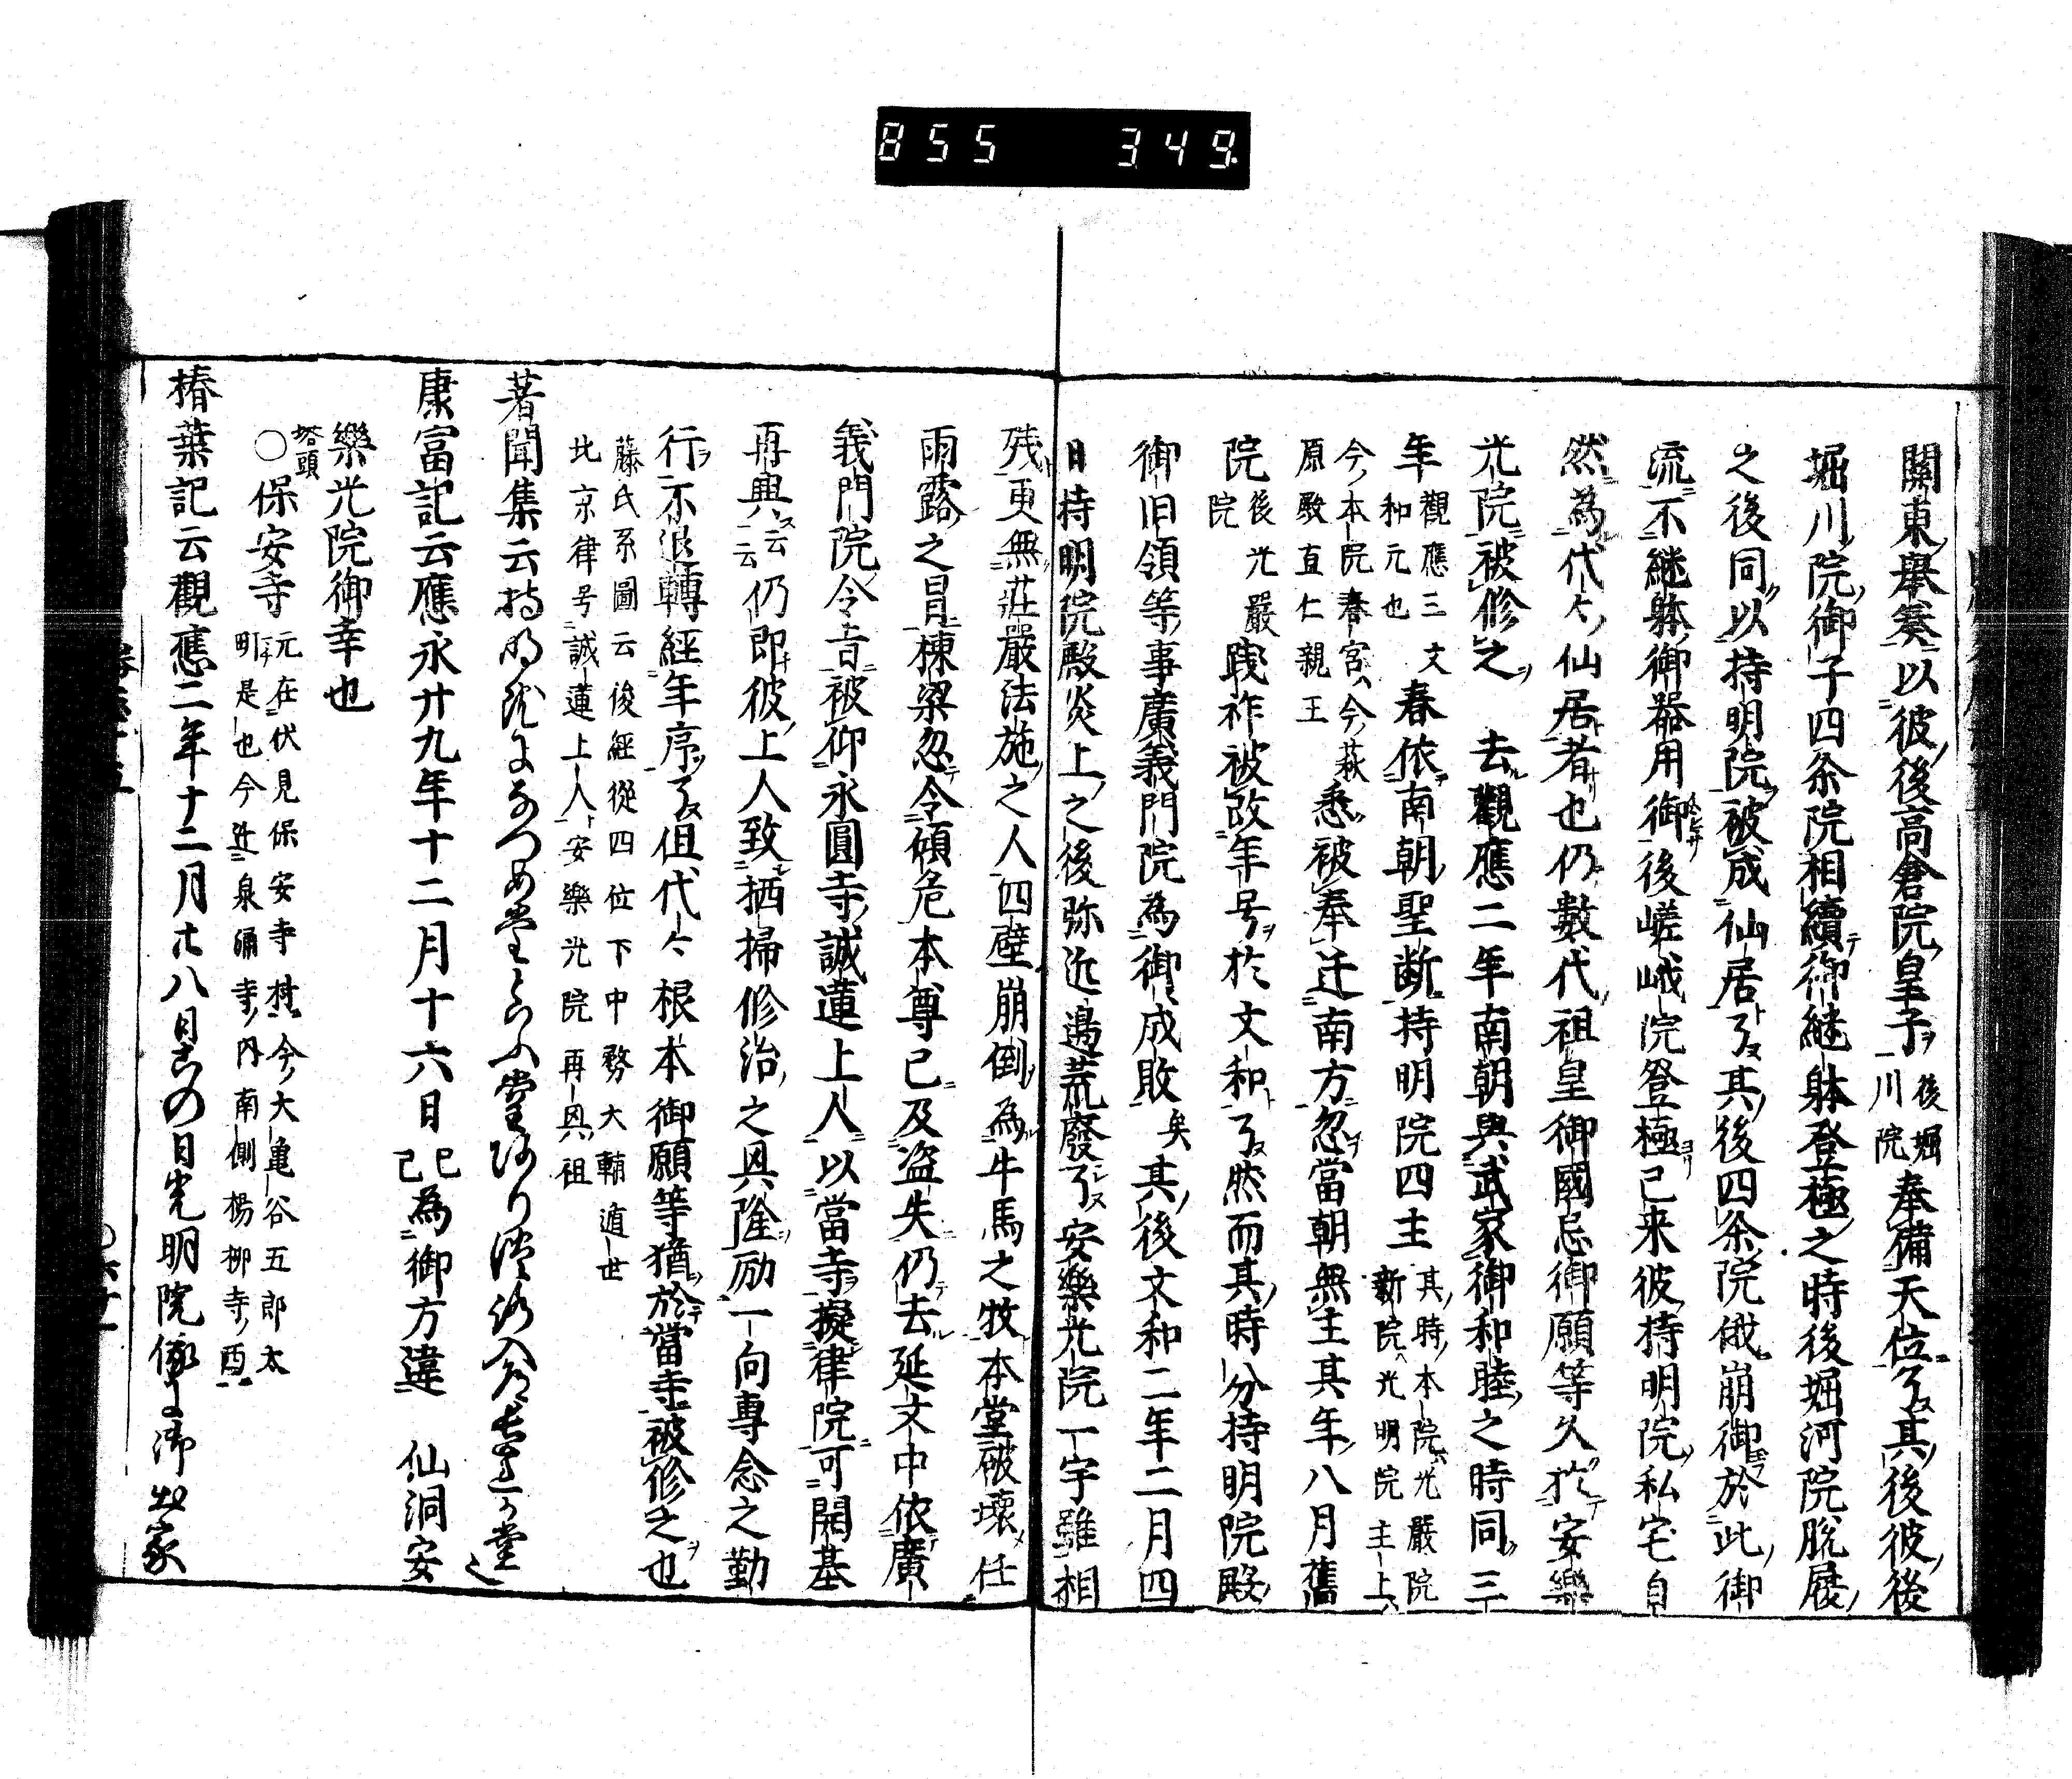 855 349.
關東舉奏以彼後高倉院皇子後堀川院奉備天位了其後彼後
堀川院御子四条院相續御継躰登極之時後堀河院脱屣
之後同以持明院被成仙居了其後四条院俄崩御於此御
流不継躰御器用御後嵯峨院登極已来彼持明院私宅自
然為代々仙居者也仍數代祖皇御國忌御願等久於安樂
光院被修之 去觀應二年南朝與武家御和睦之時同三
年觀應三文和元也春依南朝聖断持明院四主其時本院光嚴院新院光明院主上
今本院春宮今萩原殿直仁親王悉被奉迁南方忽當朝無主其年八月舊
院後光嚴院踐祚被改年号於文和了然而其時分持明院殿
御旧領等事廣義門院為御成敗矣其後文和二年二月四
日持明院殿炎上之後弥近邊荒廢了安樂光院一宇雖相
残更無莊嚴法施之人四壁崩倒為牛馬之牧本堂破壊任
雨露之冒棟梁忽令傾危本尊已及盗失仍去延文中依廣
義門院令旨被仰永圓寺誠蓮上人以當寺擬律院可開基
再興云云仍即彼上人致栖掃修治之興隆励一向專念之勤
行不退轉經年序了但代々根本御願等猶於當寺被修之也
藤氏系圖云俊経從四位下中務大輔遁世
此京律号誠蓮上人安樂光院再興祖
著聞集云持明院になつめ堂といふ堂あり
康富記云應永廿九年十二月十六日己巳為御方違 仙洞安
樂光院御幸也
塔頭
○保安寺元在伏見保安寺村今大亀谷五郎太町是也今迁泉涌寺内南側楊柳寺西
椿葉記云觀應二年十二月廿八日この日光明院俄に御出家